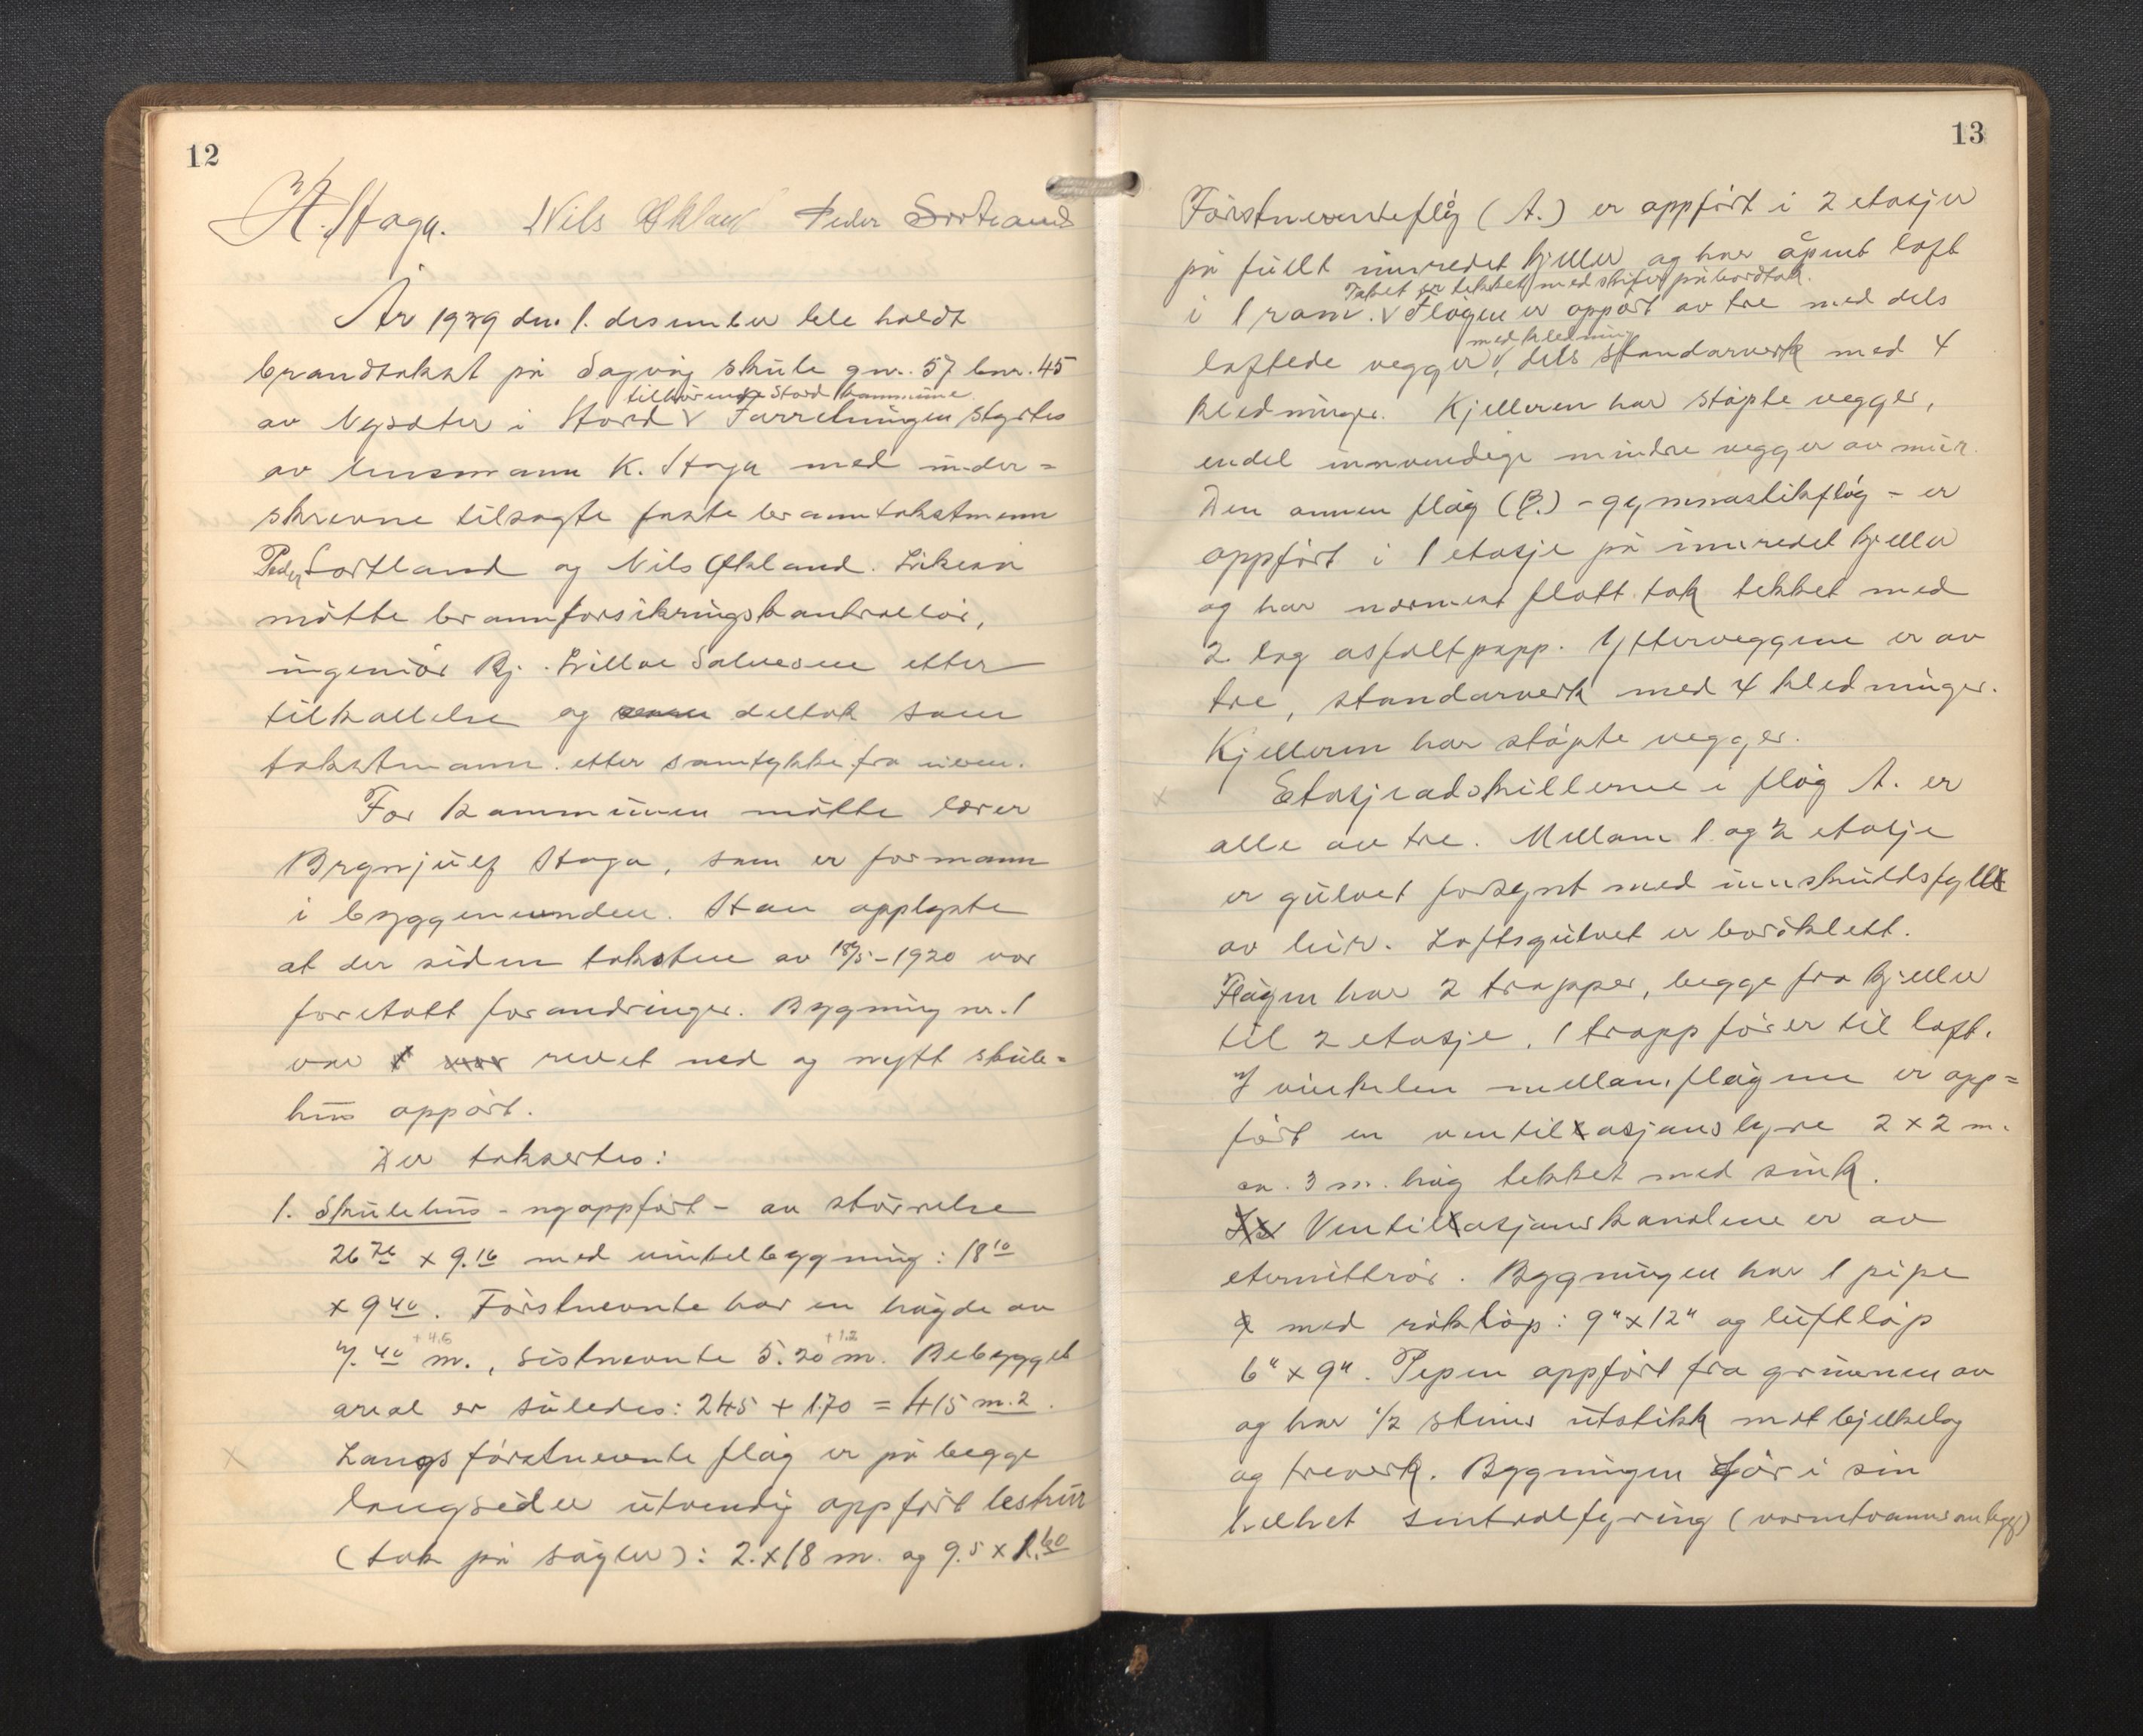 12
K. Haga. Nils Økland Peder Sortland
År 1939 den 1. desember ble holdt
branntakst på Sagvåg skule gnr. 57 bnr. 45
tilhørende Stord kommune.
av Nysæter i Stord V Forretningen styrtes
av lensmann K. Haga med under=
skrevne tilsagte faste branntakstmenn
Peder Sortland og Nils Økland. Likeså
møtte brannforsikringskontrollør,
ingeniør Bj. Lilloe Salvesen etter
tilkallelse og deltok som
takstmann etter samtykke fra
For kommunen møtte lærer
Brynjulf Haga, som er formann
i byggenemnden. Han opplyste
at der siden taksten av 18/5-1920 var
foretatt forandringer. Bygning nr. 1
var revet ned og nytt skule=
hus oppørt.
Der taksertes:
1. Skulehus - nyoppført - av størrelse
26 76 x 9.16 med vinkelbygning: 18 10
x 9 40. Førstnevnte har en høgde av
+ 4.5 + 1.2
7. 40 m., sistnevnte 5.20 m. Bebygget
areal er således: 245 + 170 = 415 m.2.
x Langs førstnevnte fløg er på begge
langsider utvendig oppført leskur
(tak på søyler): 2. x 18 m. og 9.5 x 1.60
13
Førstnevntefløg (A.) er oppført i 2 etasjer
på fullt innredet kjeller og har åpent loft
Taket er tekket med skifer på bordtak.
i 1 rom. V Fløgen er oppørt av tre med dels
med kledning
laftede vegger V, dels standarverk med 4
kledninger. Kjelleren har støpte vegger,
endel innvendige mindre vegger av mur.
Den annen fløg (B.) - gymnastikfløg - er
oppført i 1 etasje på innredet kjeller
og har nærmest flatt tak tekket med
2 lag asfaltpapp. Ytterveggene er av
tre, standarverk med 4 kledninger.
Kjelleren har støpte vegger.
x Etasjeadskillerne i fløg A. er
alle av tre. Mellom 1 og 2 etasje
er gulvet forsynt med innskuddsfyll
av leir. Loftsgulvet er bordklett.
Fløgen har 2 trapper, begge fra kjeller
til 2 etasje. 1 trapp fører til loft.
I vinkelen mellom fløgene er opp=
ført en ventilasjonslyre 2 x 2 m.
ca. 3 m. høg tekket med sink.
Ventilasjonskanalene er av
eternittrør. Bygningen har 1 pipe
med røkløp: 9" x 12" og luftløp
6" x 9". Pipen oppført fra grunnen av
og har 1/2 steins utstikk mot bjelkelag
og treverk. Bygningen får i sin
helhet sentralfyring (varmtvannsanlegg)